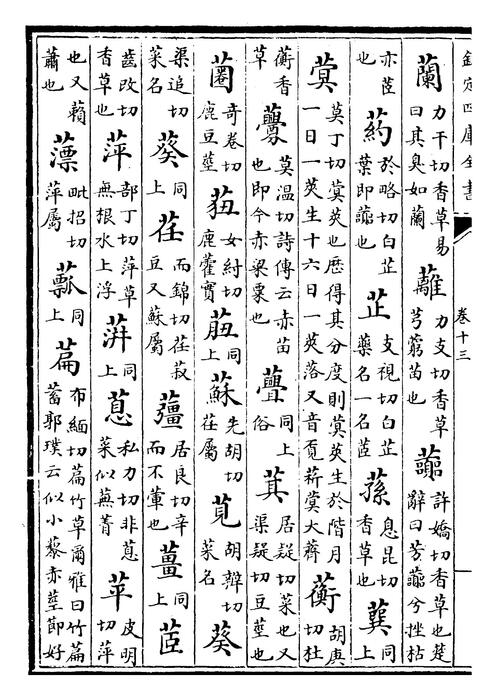 欽定四庫全書
卷十三
蘭力干切香草易曰其臭如蘭 蘺力支切香草芎藭苗也 虈許嬌切香草也楚辭曰芳虈兮挫枯
亦茝也 葯於略切白芷葉即虈也 芷支視切白芷藥名一名茝 蓀息昆切香草也 同上
蓂莫丁切蓂莢也厯得其分度則蓂莢生於階月一日一莢生十六日一莢落又音覔菥蓂大薺 蘅胡庚切杜
蘅香草 虋莫温切詩傳云赤苗也即今赤梁粟也 同上俗 萁居疑切菜也又渠疑切豆莖也
蔨奇卷切鹿豆莖 莥女紂切鹿藿實 同上 蘇先胡切荏屬 莧胡辦切菜名 葵
渠追切菜名 葵同上 荏而錦切荏菽豆又蘇屬 䕬居良切辛而不葷也 薑同上 茝
齒改切香草也 萍部丁切萍草無根水上浮 蓱同上 蒠私力切菲蒠菜似蕪菁 苹皮明切萍
也又藾蕭也 薸毗招切萍屬 同上 萹布緬切萹竹草爾雅曰竹萹蓄郭璞云似小藜赤莖節好